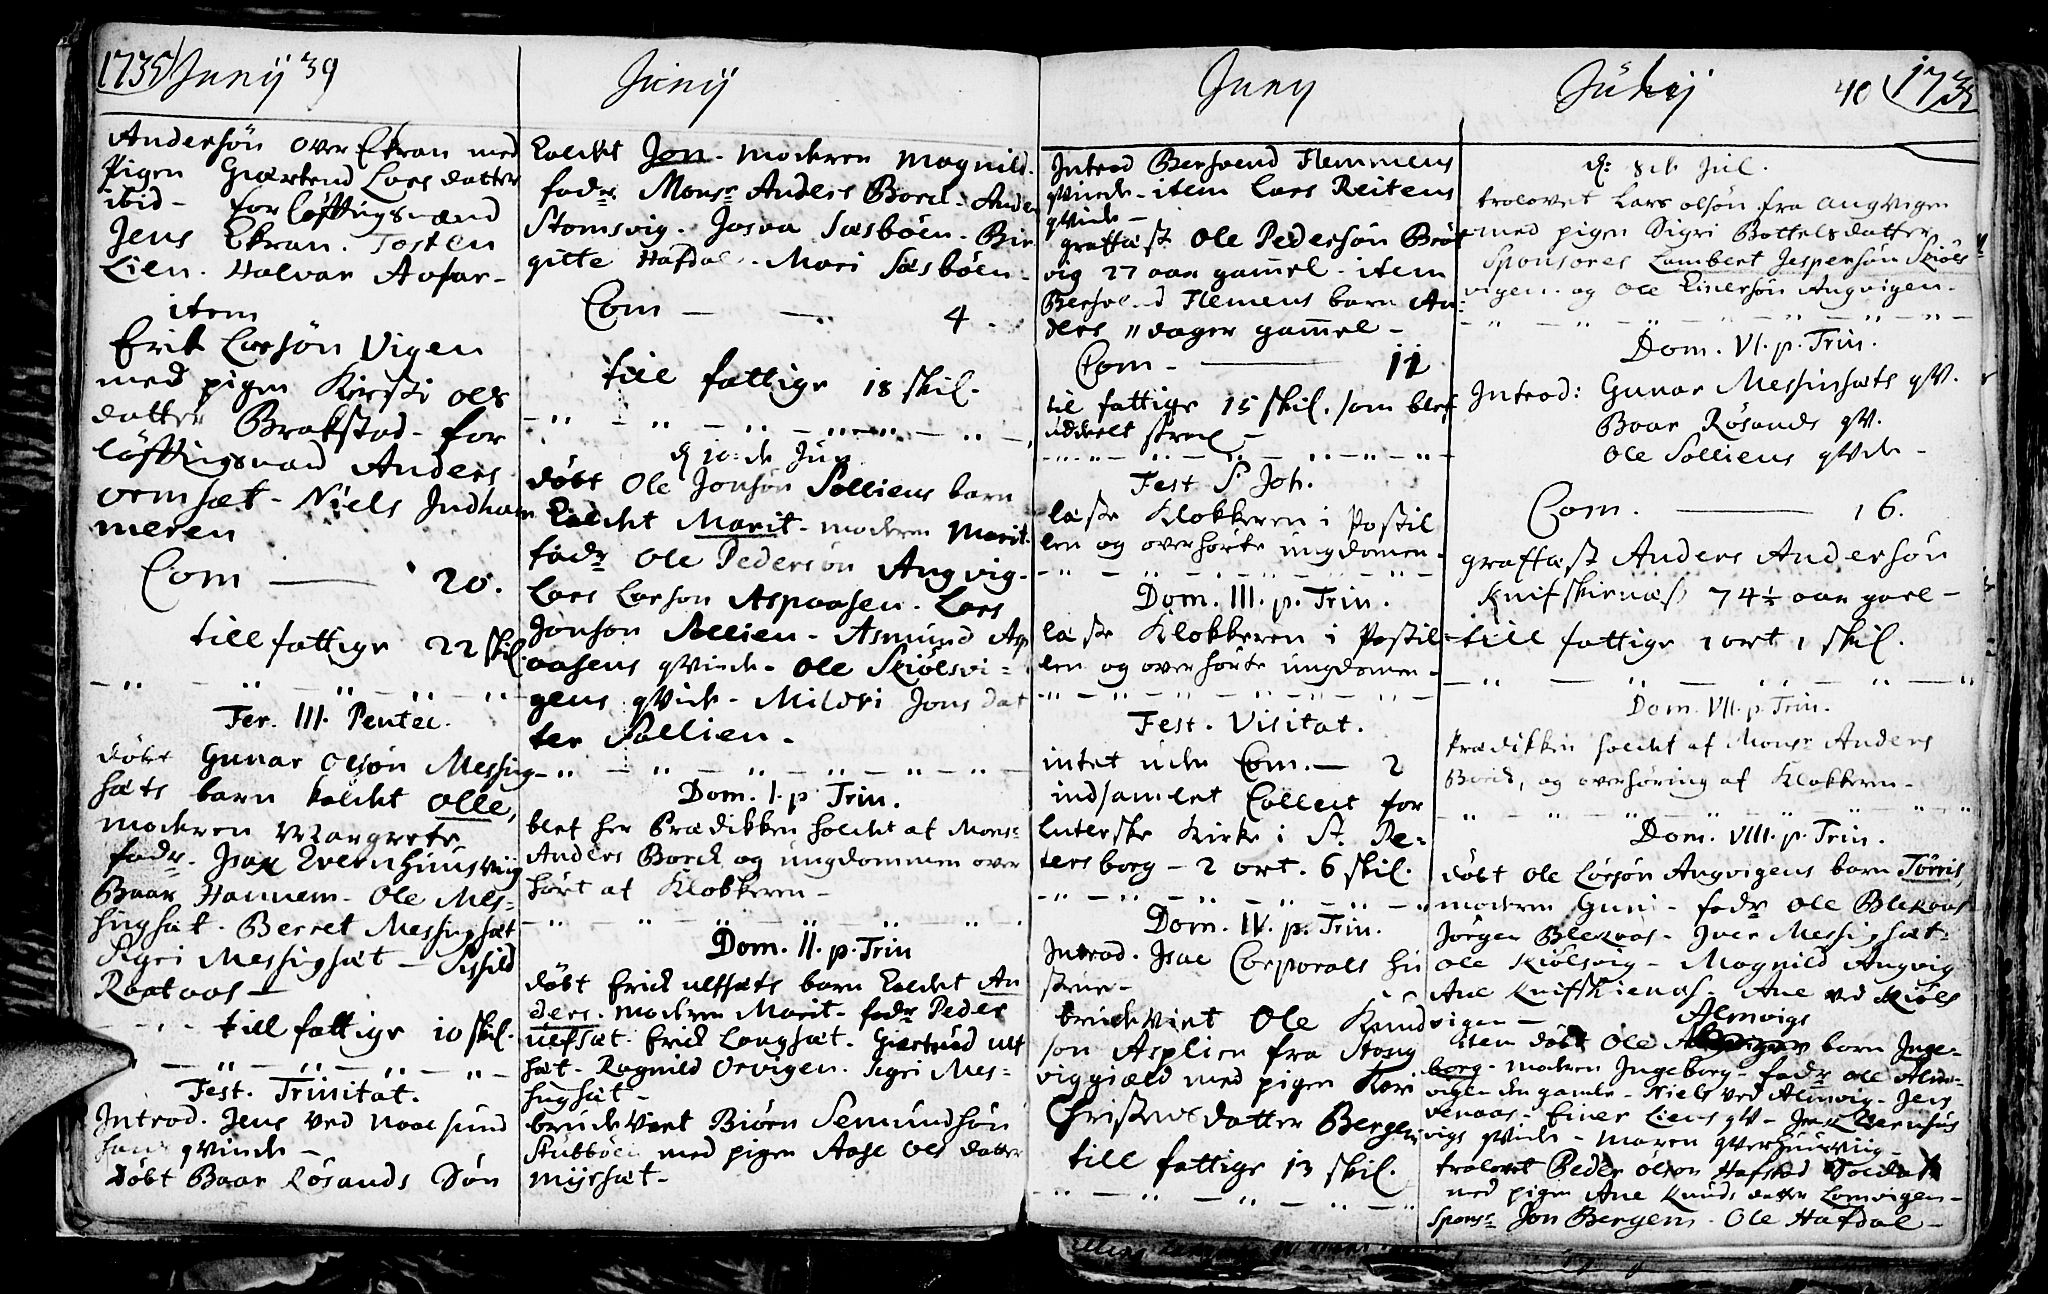 1735 Junij 39
Andersøn over Ekran med
Pigen Giærtrud Lars datter
ibid - for løftingsmænd
Jens Ekran. Tosten
Lien. Halvar Aafar-
item
Erik Larsøn Vigen
med pigen Kirsti Ols
datter Brakstad - for
løftingsmæd Anders
ormsæt - Niels Indham
meren
Com — 20.
till fattige 22 skil.
Fer. III. Pentec.
døbt Gunar Olsøn Messing
sæts barn kaldet Olle,
moderen Margrete
fadr. Isak Evernhuusviig
Baar Hannem - Ole Mes-
singsæt - Berret Messingsæt
Sigri Messingsæt - Sissild
Raataas -
till fattige 10 skil.
Fest. Trinitat.
Introd. Jens ved Naaesund
hans qvinde -
Døbt Baar Røsands Søn
Junij
kaldet Jon. moderen Magnild.
fadr. Monsr Anders Borck - Anders
Stomsvig. Josva Sæsbøen - Bir
gitte Hafdal - Mari Sæsbøen -
Com — — 4.
till fattige 18 skil.
d 10: de Jun
døbt Ole Jonsøn Solliens barn
kaldet Marit - moderen Marit.
fadr Ole Pedersøn Angvig -
Lars Larsøn Aspaasen. Lars
Jonsøn Sollien - Asmund Asp
aasens qvinde - Ole Skiølsvi-
gens qvinde - Mildri Jons dat
ter Sollien -
Dom. I. p Trin.
blef her Prædikken holdet af Monsr
Anders Borck og ungdommen over
hørt af Klokkeren -
Dom. II. p. Trin
døbt Erick ulfsæts barn kaldet An
ders. moderen Marit - fadr Peder
ulfsæt. Erick Langsæt. Giertrud ulf
sæt - Ragnild Orvigen. Sigri Mes-
singsæt -
brudeviet Biørn Semundsøn
Stubbøen med pigen Aase Ols datter
myrsæt -
Juny
Introd Bersvend Flemmens
qvinde - item Lars Reitens
qvinde -
graffæst Ole Pedersøn Brøs
vig 27 aar gamel - item
Bersvend Flemens barn An-
ders 11 dager gammel -
Com - — 11
til fattige 15 skil. som blef
uddeelt strax -
Fest S Joh.
læste Klokkeren i Postil
len og overhørte ungdomen -
Dom. III. p. Trin.
læste Klokkeren i Postil-
len og overhørte ungdomen -
Fest. Visitat.
intet uden Com. — 2
indsamlet Collect for
luterske Kirke i St. Pe-
tersborg - 2 ort. 6 skil.
Dom. IV. p. Trin.
Introd. Isac Corporals hu
strue -
brudeviet Ole Knud
søn Asplien fra Stang
viggiæld med pigen Kari
Christens datter Bergem
till fattige 13 skil.
Julij 40 1735
d: 8de Jul.
trolovet Lars olsøn fra Angvigen
med pigen Sigri Bottelsdatter
Sponsores Lambert Jespersøn Skiøls
vigen. og Ole Einersøn Angvigen -
Dom. VI. p. Trin.
Introd: Gunar Messinsæts qv.
Baar Røsands qv.
Ole Solliens qvinde -
Com. — 16.
graffæst Anders Andersøn
Knifskienæs 74½ aar gael -
till fattige 1 ort 1 skil.
Dom. VII. p. Trin.
Prædikken holdet af Monsr Anders
Borck, og overhøring af Klokkeren -
Dom. VIII. p. Trin.
døbt Ole Larsøn Angvigens barn Tørris,
moderen Guni - fadr Ole Blekaas
Jørgen Blekaas - Iver Messingsæt -
Ole Skiølsvig - Magnild Angvig
Ane Knifskienæs. Ane ved Skiøls
vigen - Almvigs
item døbt Ole barn Inge-
borg - modren Ingeborg - fadr Ole Alm-
vigen den gamle - Niels ved Almvig - Jens
venaas - Einer Liens qv - Evernhus
vigs qvinde - maren qverhuusviig -
trolovet Peder Olsøn Hafstad Soldat
med pigen Ane Knuds datter Lomvigen -
Sponsr Jon Bergem - Ole Hafdal -